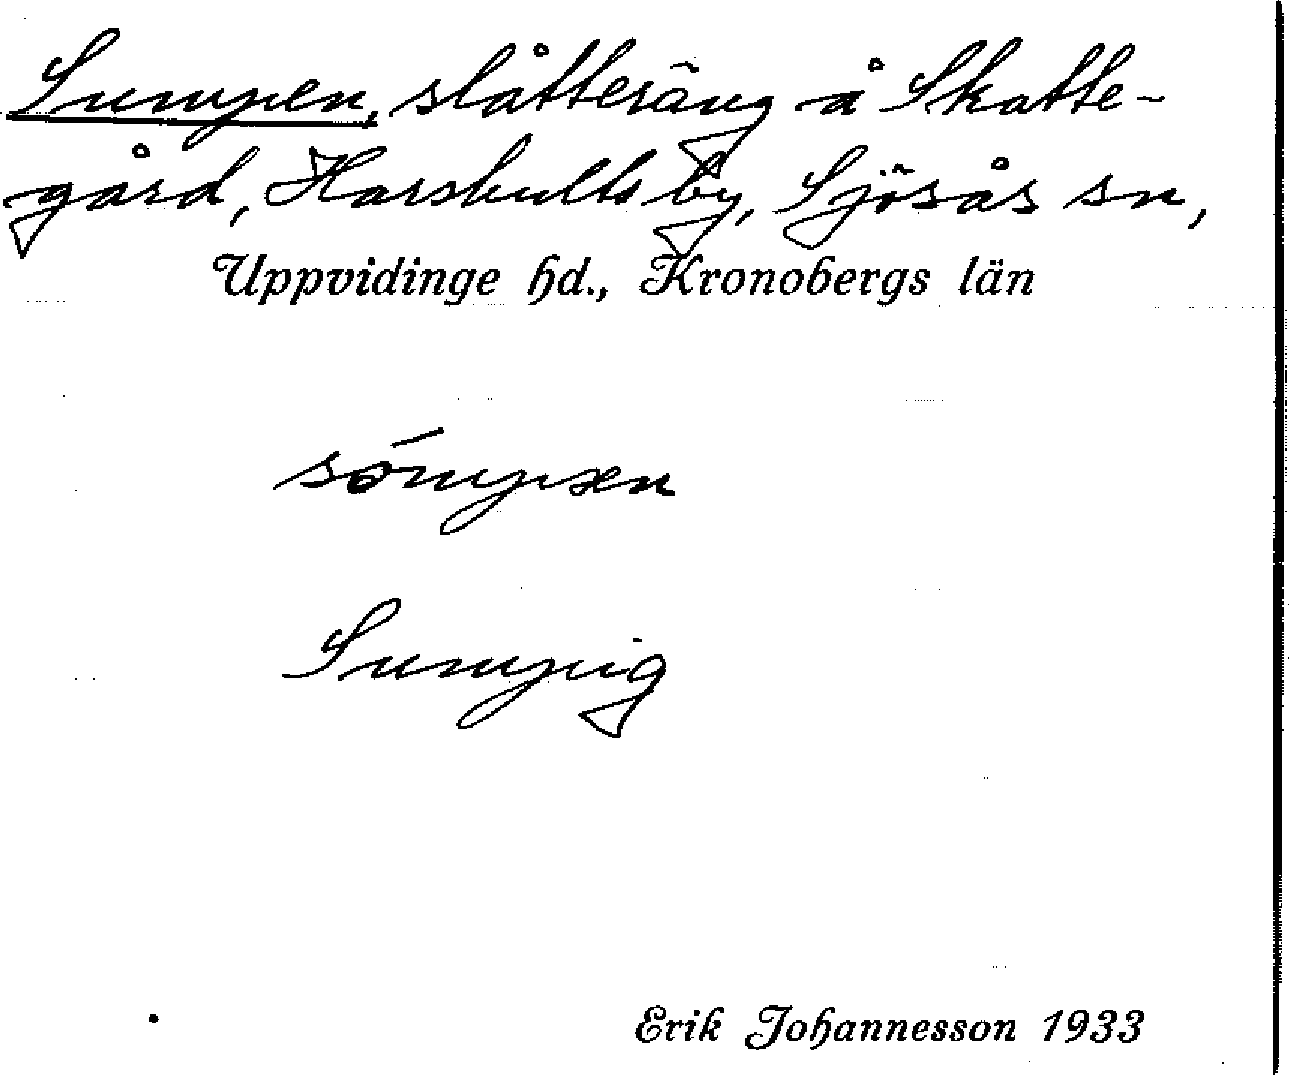 Sumpen, slåtteräng å Skatte-
gård, Harshults by, Sjösås sn,
Uppvidinge hd., Kronobergs län
sómpen
Sumpig
Erik Johannesson 1933